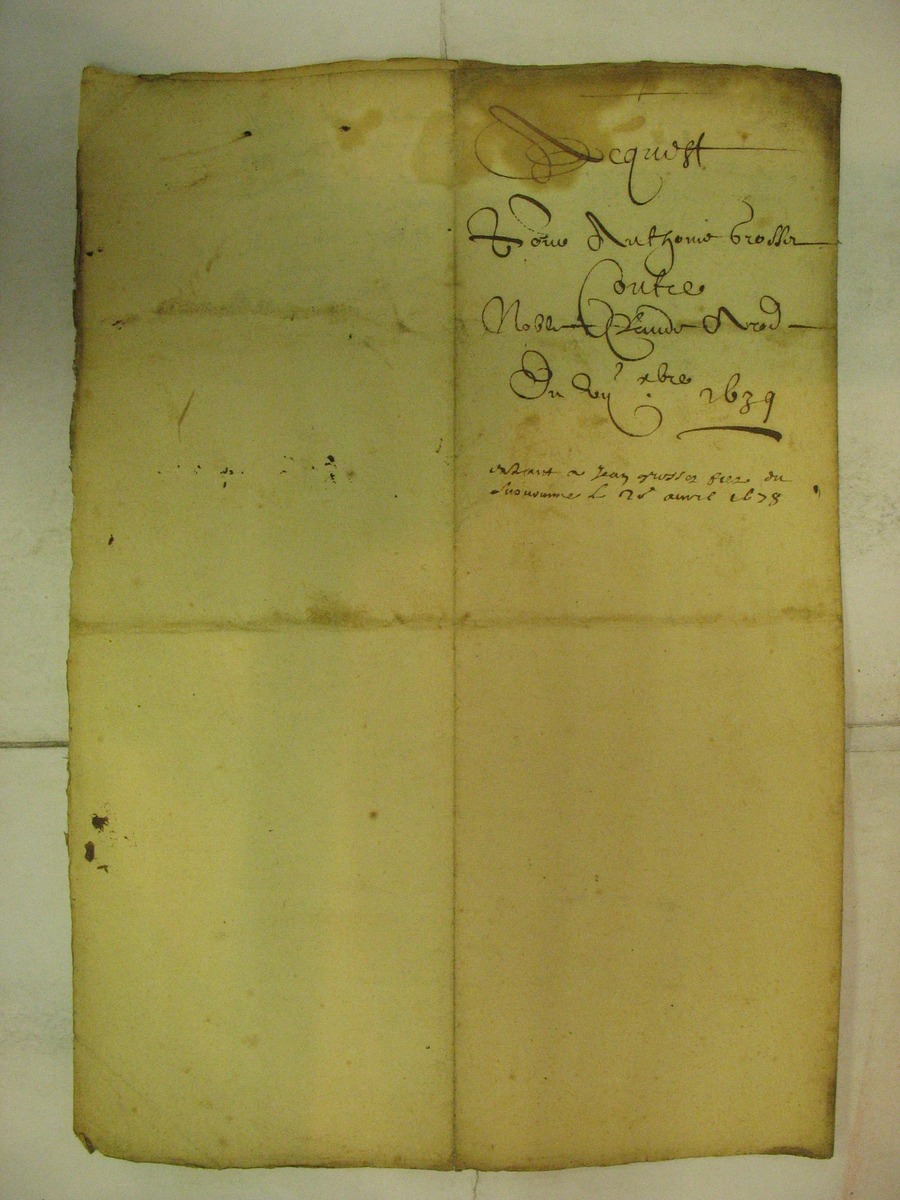 Acquest
Pour Anthonie Grosset
Contre
Noble Claude Arod
Du xbre 1639
a Jean grosset du
le 26 avril 1678